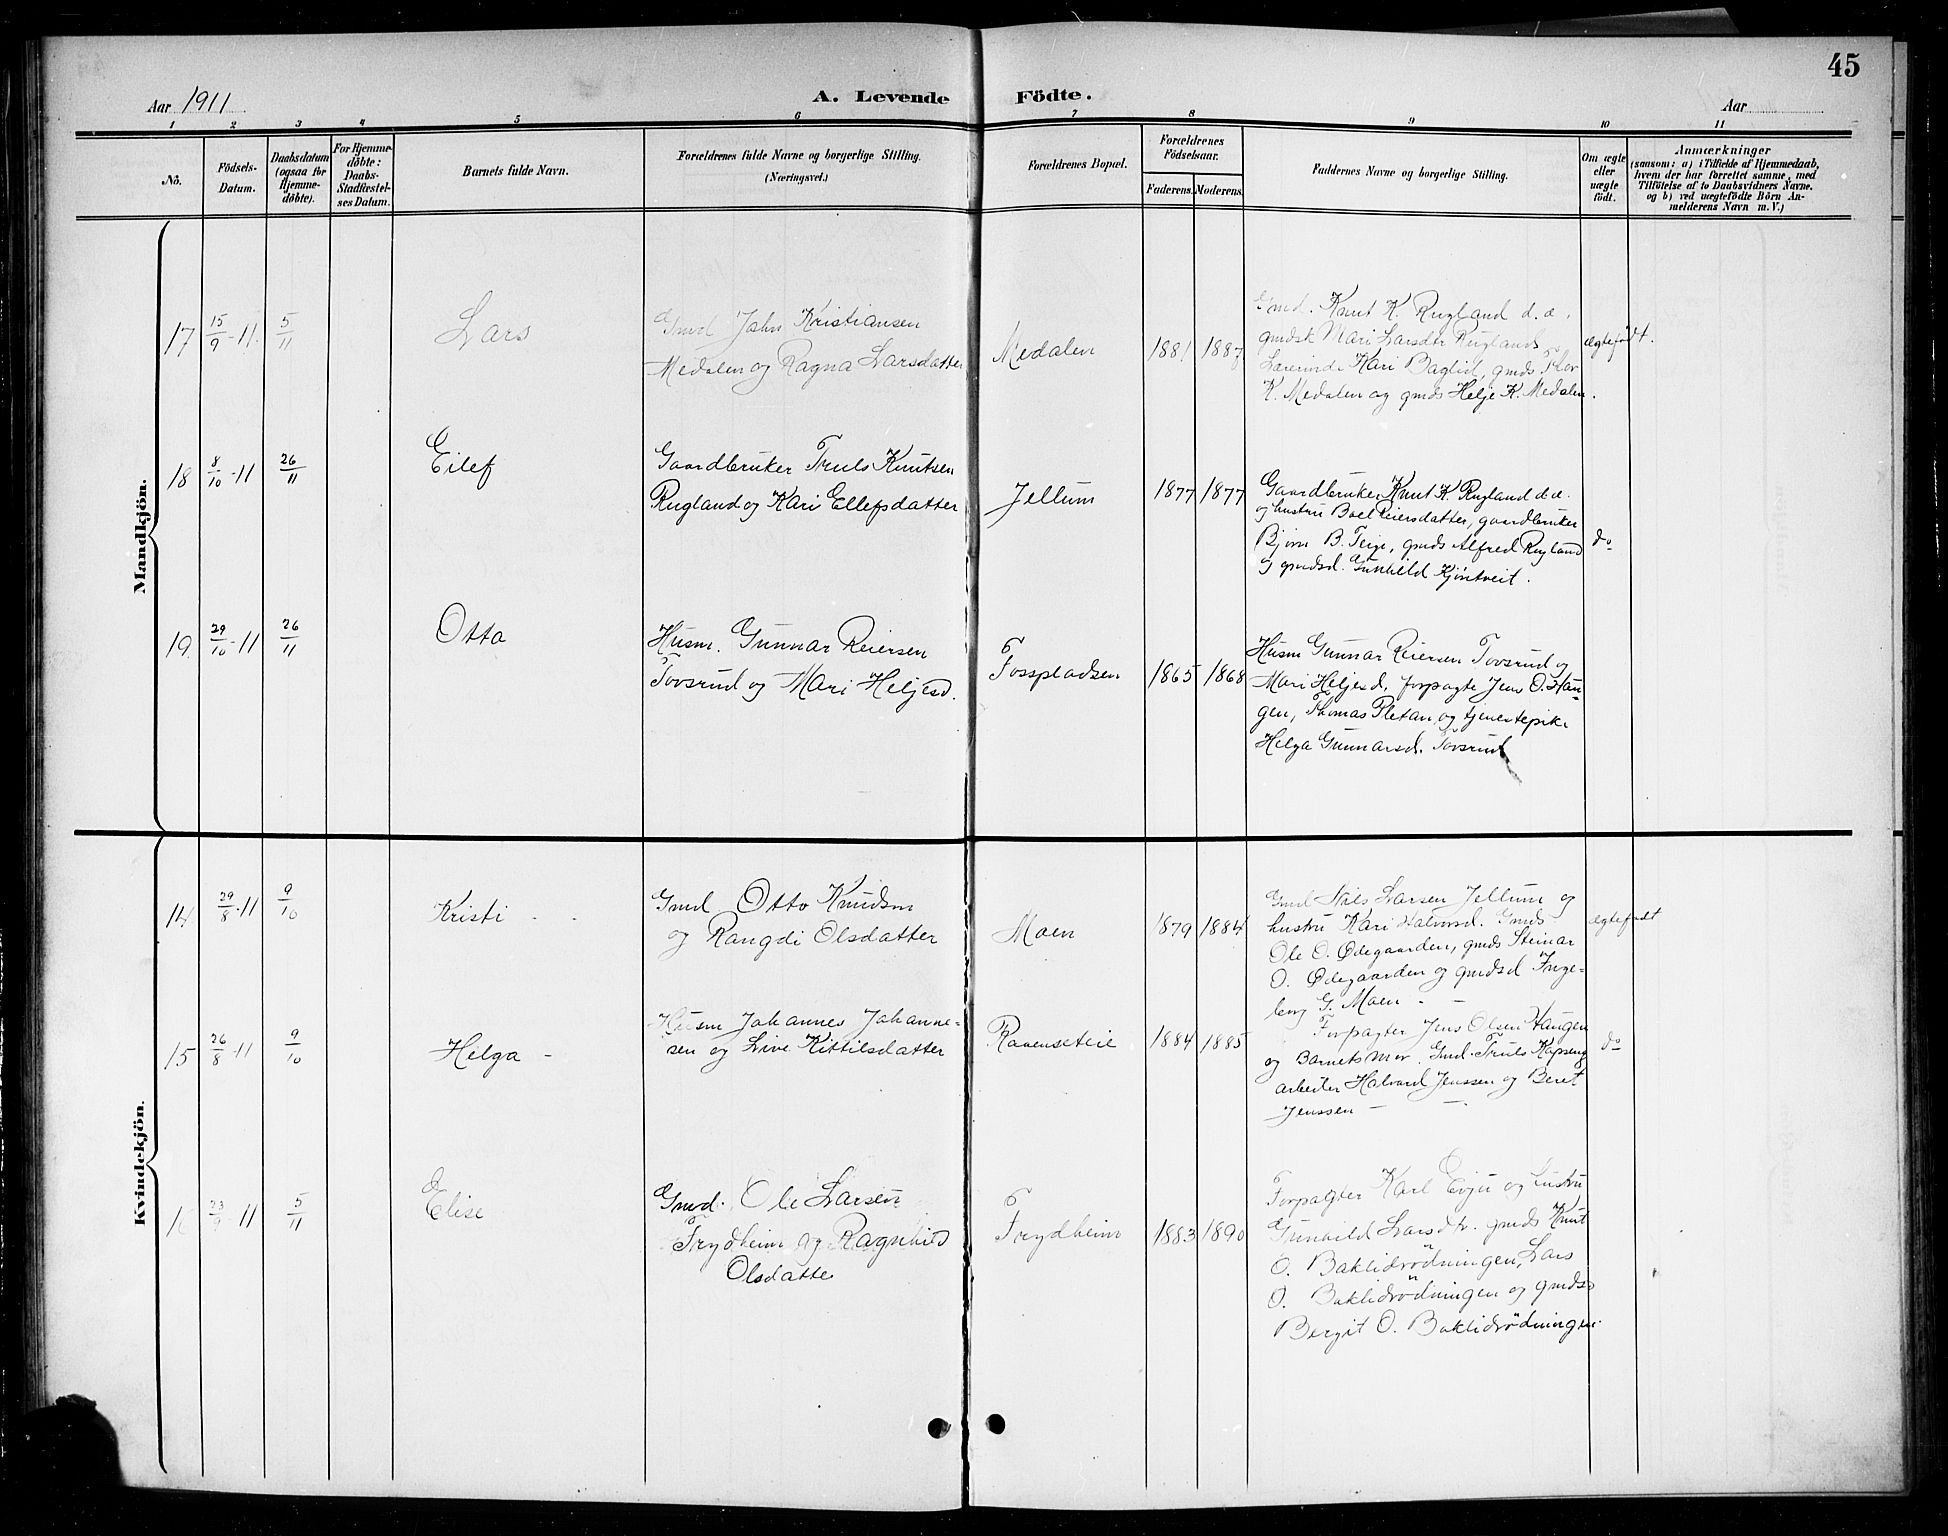 45
Aar 1911
A. Levende Födte.
Aar
1 2 3 4 5 6 7 8 9 10 11
No.
Födsels-
Datum.
Daabsdatum
(ogsaa for
Hjemme-
døbte).
For Hjemme-
døbte:
Daabs-
Stadfæstel-
ses Datum.
Barnets fulde Navn.
Forældrenes fulde Navne og borgerlige Stilling.
(Næringsvei.)
Forældrenes Bopæl.
Forældrenes
Födselsaar.
Faderens. Moderens.
Faddernes Navne og borgerlige Stilling.
Om ægte
eller
uægte
født.
Anmærkninger
(saasom: a) i Tilfælde af Hjemmedaab,
hvem der har forrettet samme, med
Tilføielse af to Daabsvidners Navne.
og b) ved uægtefødte Börn An-
melderens Navn m. V.)
Mandkjön.
17
15/9-11.
5/11
Lars
Gmd John Kristiansen
Medalen og Ragna Larsdatter
Medalen
1881
1887
Gmd. Knut K. Rugland d. æ.
gmdsk Mari Larsdtr Rugland
Lærerinde Kari Baglid, gmds Tlov
K. Medalen og gmds Helje K. Medalen.
ægtefødt.
18
8/10-11
26/11
Eilef
Gaardbruker Truls Knutsen
Rugland og Kari Ellefsdatter
Jellum
1877
1877
Gaardbruker Knut K. Rugland d.æ.
og hustru Boel Reiersdatter, gaardbruker
Bjørn B. Teige, gmds Alfred Rugland
og gmdsd. Gunhild Kjöntveit.
do
19
29/10-11
26/11
Otto
Husm. Gunnar Reiersen
Tovsrud og Mari Heljesd.
Fosspladsen
1865
1868
Husm Gunnar Reiersen Tovsrud og
Mari Heljesd, forpagte Jens O. Hau-
gen, Thomas Pletan og tjenestepike
Helga Gunnarsd. Tovsrud
Kvindekjön.
14
29/8-11
9/10
Kristi
Gmd Otto Knudsen
og Rangdi Olsdatter
Moen
1879
1884
Gmd Nils Larsen Jellum og
hustru Kari Halvorsd. Gmds
Ole O. Ødegaarden, gmds Steinar
O. Ødegaarden og gmdsd Inge-
borg G. Moen
ægtefødt
15
26/8-11
9/10
Helga
Husm Johannes Johanne-
sen og Live Kittilsdatter
Ravenseteie
1884
1885
Forpagter Jens Olsen Haugen
og Barnets mor. Gmd. Truls Kapseng
arbeiter Halvord Jenssen og Beret
Jenssen
do
16
23/9-11
5/11
Elise
Gmd. Ole Larsen
Frydheim og Ragnhild
Olsdatte
Frydheim
1883
1890
Forpagter Karl Evju og hustru
Gunhild Larsdtr. gmds Knut
O. Baklidrödningen, Lars
O. Baklidrödningen og gmdsd
Bergit O. Baklidrödningen.